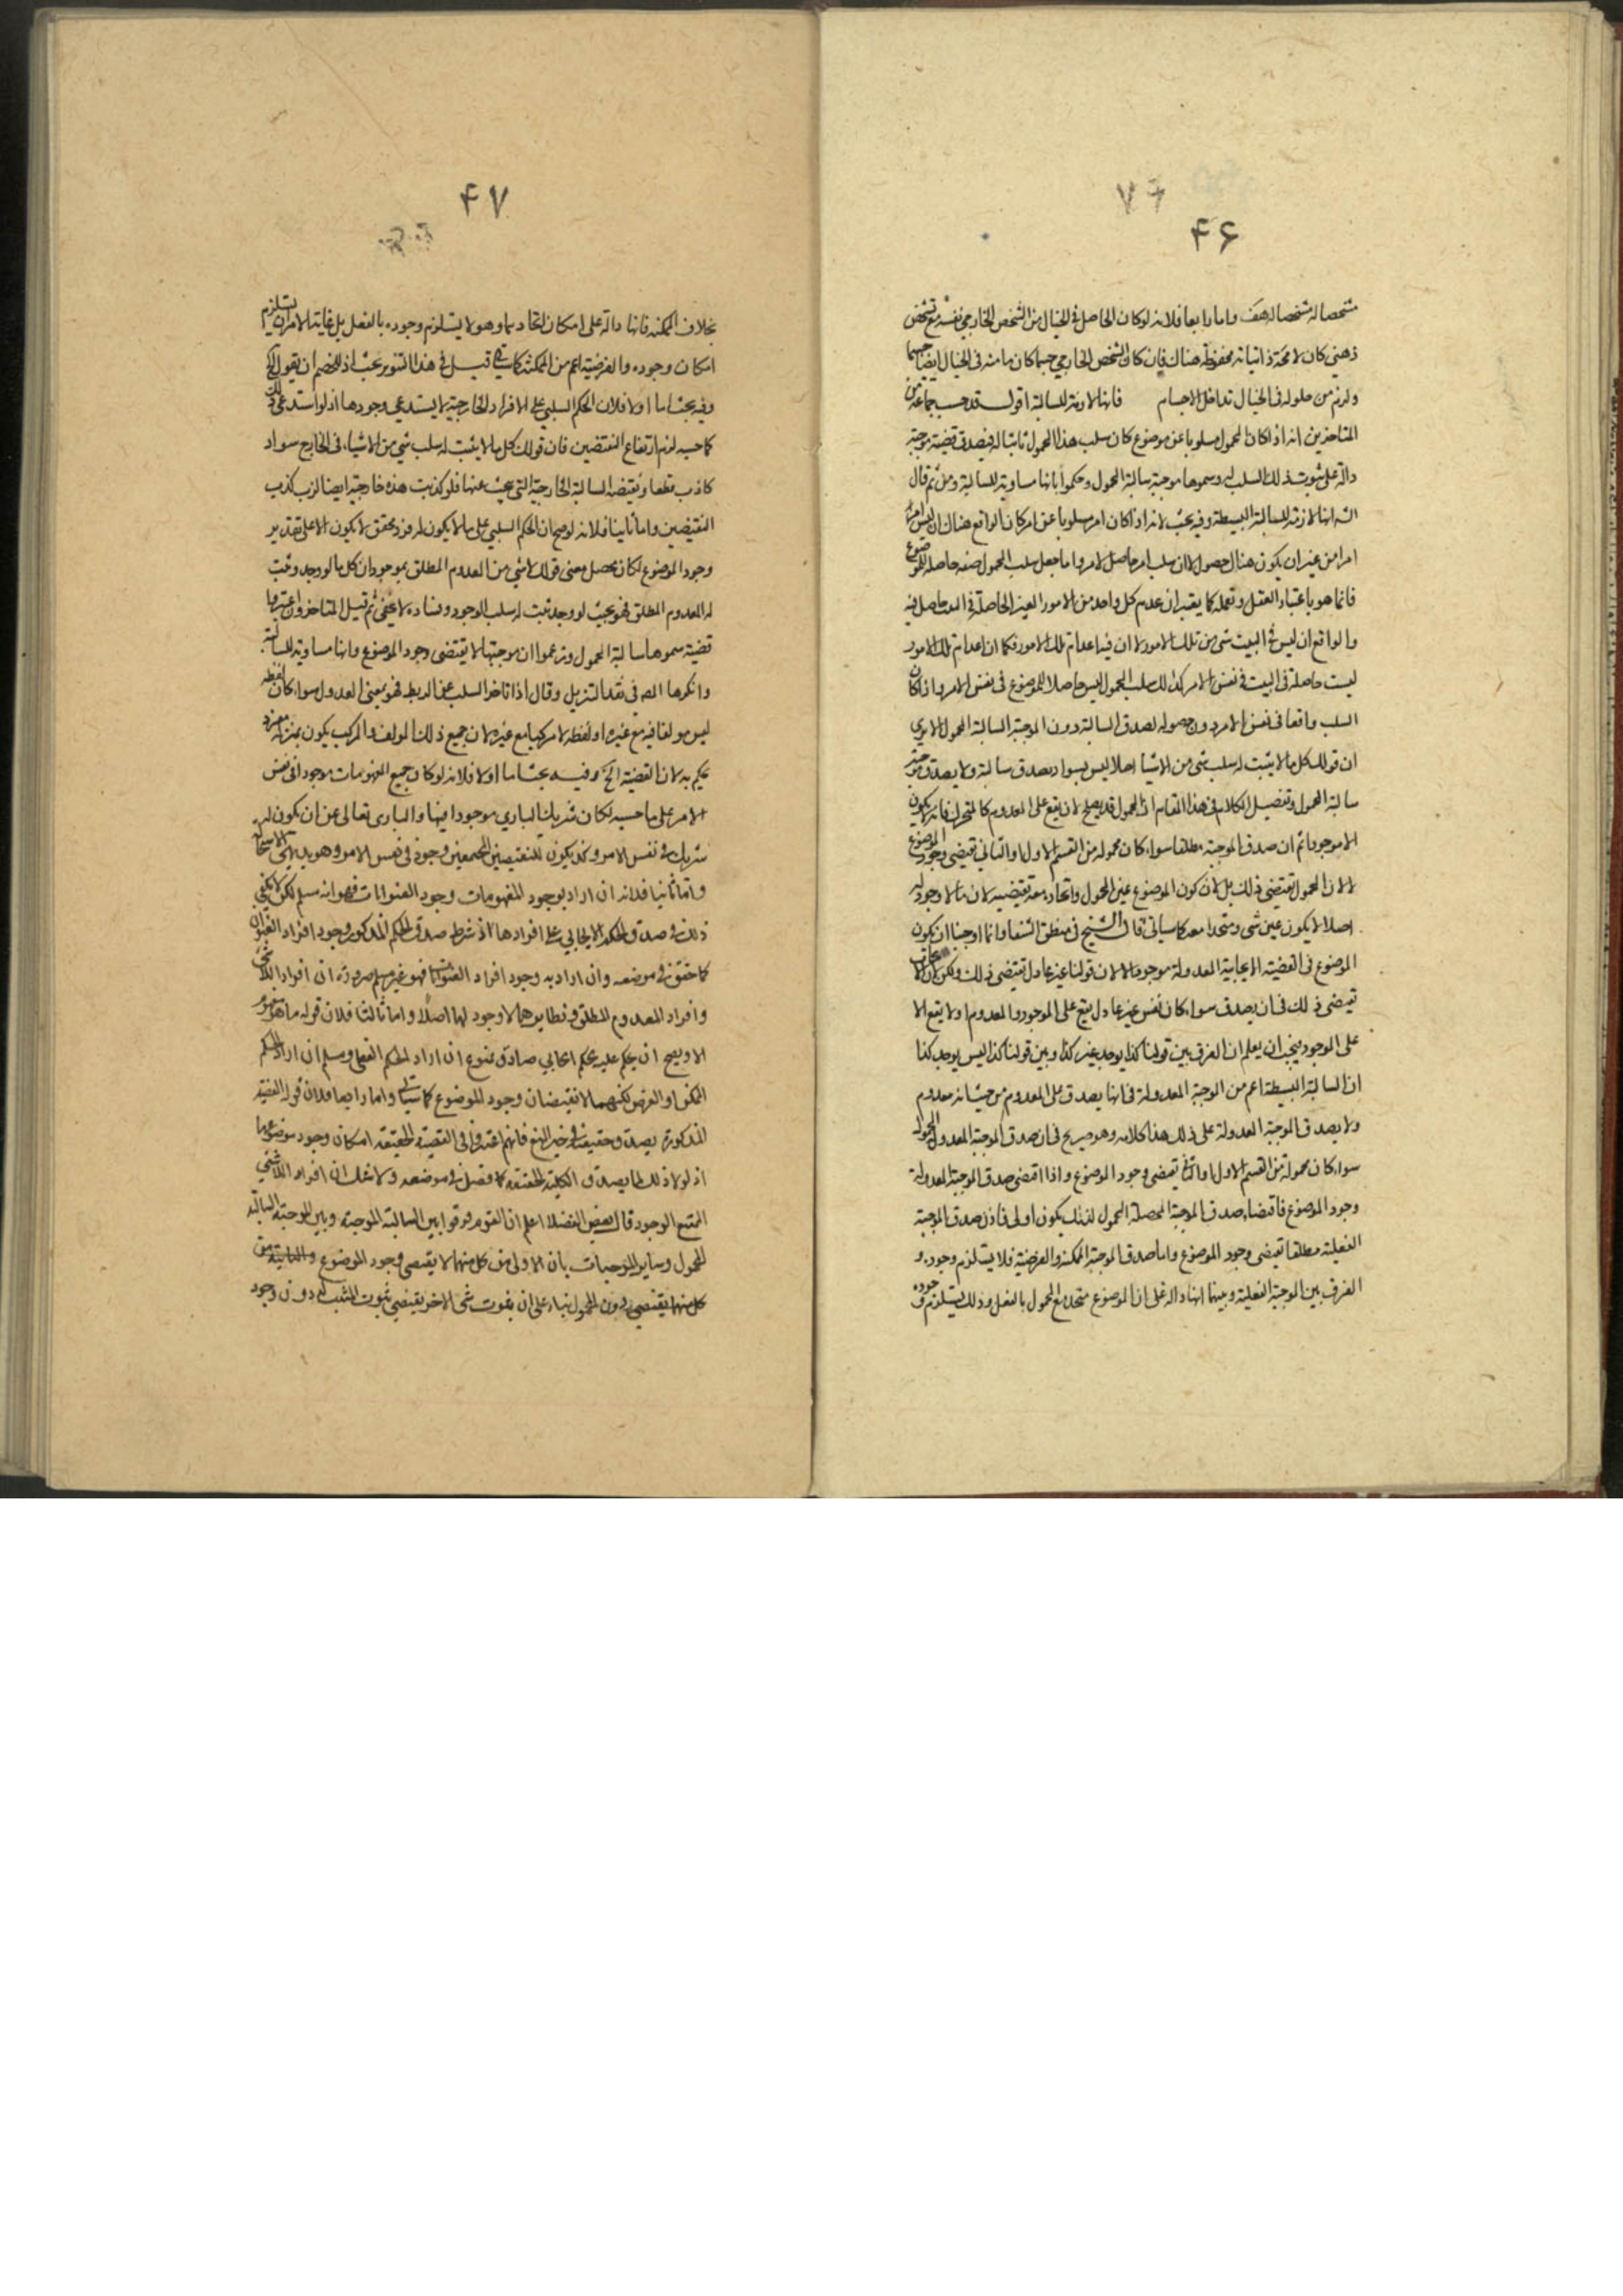 ۷۶
۴۶
مشخصا له مشخصا له هف واما رابعا فلانه لوكان الحاصل فى الخيال من الشخص الخارجي نفسه مع تشخص
ذهني كان لا محة ذاتياته محفوظة هناك فان كان الشخص الخارجي جسما كان ما منه فى الخيال ايضا جسما
ولزم من حلوله فى الخيال تداخل الاجسام فانها لازمة للسالبة اقول قد حسب جماعة من
المتاخرين انه اذا كان المحمول مسلوبا عن موضوع كان سلب هذا المحمول ثابتا له فيصدق قضية موجبة
دالة على ثبوت ذلك السلب له وسموها موجبة سالبة المحمول وحكموا بانها مساوية للسالبة ومن ثم قال
الشه انها لازمة للسالبة البسيطة وفيه بحث لانه اذا كان امر مسلوبا عن امر كان الواقع هناك ان ليس امر
امرا من غير ان يكون هناك حصول لان سلب امر حاصل لامر واما جعل سلب المحمول صفة حاصلة للموضوع
فانما هو باعتبار العقل وتعمله كما يعتبر ان عدم كل واحد من الامور الغير الحاصلة فى البيت حاصل فيه
والواقع ان ليس فى البيت شى من تلك الامور لا ان فيه اعدام تلك الامور فكما ان اعدام تلك الامور
ليست حاصلة فى البيت فى نفس الامر كذلك سلب المحمول ليس حاصلا للموضوع فى نفس الامر واذا كان
السلب واقعا فى نفس الامر دون حصوله لصدق السالبة دون الموجبة السالبة المحمول الا يرى
ان قولك كل ما لا يثبت له سلب شى من الاشيا اصلا ليس بسواد يصدق سالبة ولا يصدق موجبة
سالبة المحمول وتفصيل الكلام فى هذا المقام ان المحمول قد يصلح لان يقع على المعدوم كالمتحرك فانه لا يكون
الا موجودا ثم ان صدق الموجبة مطلقا سواء كان محموله من القسم الاول او الثاني تقتضى وجود الموضوع
لا لان المحمول تقتضى ذلك بل لان كون الموضوع عين المحمول واتحاده معه تقتضيه لان ما لا وجود له
اصلا لا يكون عين شى ومتحدا معه كما سياتي قال الشيخ فى منطق الشفا وانما اوجبنا ان يكون
الموضوع فى القضية الايجابية المعدولة موجودا لا لان قولنا غير عادل تقتضى ذلك ولكن لان الايجاب
تقتضى ذلك فى ان يصدق سواء كان نفس غير عادل يقع على الموجود والمعدوم او لا يقع الا
على الموجود فيجب ان يعلم ان الفرق بين قولنا كذا يوجد غير كذا وبين قولنا كذا ليس يوجد كذا
ان السالبة البسيطة اعم من الموجبة المعدولة فى انها يصدق على المعدوم من حيث انه معدوم
ولا يصدق الموجبة المعدولة على ذلك هذا كلامه وهو صريح فى ان صدق الموجبة المعدول المحمول
سواء كان محموله من القسم الاول او الثاني تقتضى وجود الموضوع واذا اقتضى صدق الموجبة المعدولة
وجود الموضوع فاقتضاء صدق الموجبة المحصلة المحمول لذلك يكون اولى فاذن صدق الموجبة
الفعلية مطلقا تقتضى وجود الموضوع واما صدق الموجبة الممكنة والفرضية فلا يستلزم وجوده و
الفرق بين الموجبة الفعلية وبينها انها دالة على ان الموضوع متحد مع المحمول بالفعل وذلك يستلزم وجوده
۴۷
بخلاف الممكنة فانها دالة على امكان اتحاد بها وهو لا يستلزم وجوده بالفعل بل غاية الامر ان يستلزم
امكان وجوده والفرضية اعم من الممكنة كما سياتي قيل فى هذا التنوير بحث اذ للخصم ان يقول الخ
وفيه بحث اما اولا فلان الحكم السلبي على الافراد الخارجية لا يستدعي وجودها اذ لو استدعى ذلك
كما حسبه لزم ارتفاع النقيضين فان قولك كل ما لا يثبت له سلب شي من الاشياء فى الخارج سواد
كاذب قطعا ونقيضه السالبة الخارجية التي يبحث عنها فلو كذبت هذه خارجية ايضا لزم كذب
النقيضين واما ثانيا فلانه لو صح ان الحكم السلبي على ما لا يكون له فرد محقق لا يكون الا على تقدير
وجود الموضوع لكان محصل معنى قولك لا شي من المعدوم المطلق بموجود ان كل ما لو وجد وثبت
له المعدوم المطلق فهو بحيث لو وجد ثبت له سلب الوجود وفساده لا يخفى ثم قيل المتاخرون اعتبروا
قضية سموها سالبة المحمول وزعموا ان موجبتها لا يقتضى وجود الموضوع وانها مساوية للسالبة
وانكرها المص فى نقد التنزيل وقال اذا تاخر السلب عن الربط فهو بمعنى العدول سواء كان لفظه
ليس مولفا فيه مع غيره او لفظه لا مركبا مع غيره لان جميع ذلك المولف والمركب يكون بمنزلة مفرد
يحكم به لان القضية الخ وفيه بحث اما اولا فلانه لو كان جميع المفهومات موجودا فى نفس
الامر على ما حسبه لكان شريك الباري موجودا فيها والبارى تعالى عن ان يكون له
شريك فى نفس الامر وكذا يكون للنقيضين المجتمعين وجود فى نفس الامر وهو بديهي الاستحالة
واما ثانيا فلانه ان اراد بوجود المفهومات وجود العنوانات فهو انه مسلم لكن لا يكفي
ذلك فى صدق الحكم الايجابي على افرادها اذ شرط صدق الحكم المذكور وجود افراد العنوان
كما حقق فى موضعه وان اراد به وجود افراد العنوانات فهو غير مسلم ضرورة ان افراد اللاشى
وافراد المعدوم المطلق ونظايرهما لا وجود لها اصلا واما ثالثا فلان قوله ما هو مفهوم
الا ويصح ان يحكم عليه بحكم ايجابي صادق ممنوع ان اراد الحكم الفعلى ومسلم ان اراد الحكم
الممكن او الفرضي لكنهما لا تقتضيان وجود الموضوع كما سياتي واما رابعا فلان قوله القضية
المذكورة يصدق حقيقة فى حيز المنع فانهم اعتبروا فى القضية الحقيقة امكان وجود موضوعها
اذ لولا ذلك لما يصدق الكلية الحقيقة كما فصل فى موضعه ولا شك ان افراد اللاشى
الممتنع الوجود قال بعض الفضلا اعلم ان القوم فرقوا بين السالبة الموجبة وبين الموجبة السالبة
المحمول وساير الموجبات بان الاولى من كل منهما لا يقتضى وجود الموضوع والثانية من
كل منهما يقتضي دون المحمول بناء على ان ثبوت شى لاخر يقتضي ثبوت المثبت له دون وجود